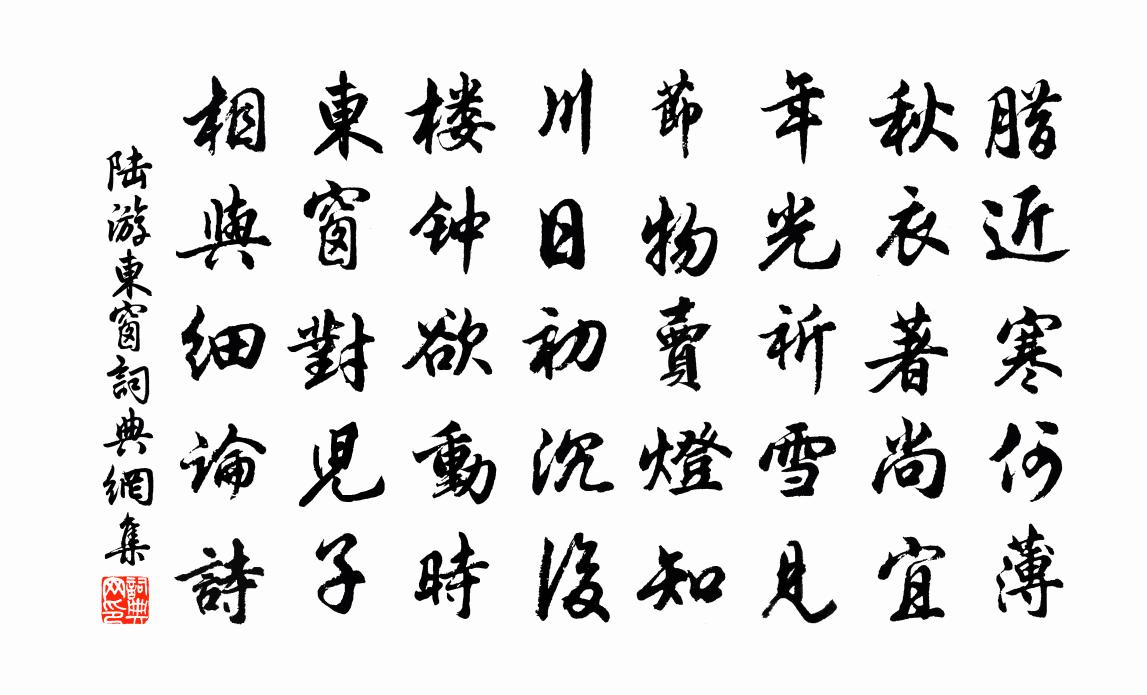 腊近寒何薄
秋衣著尚宜
年光祈雪見
節物賣燈知
川日初沉後
楼钟欲動時
東窗對兒子
相與细論詩
陆游東窗詞典網集
詞典网印